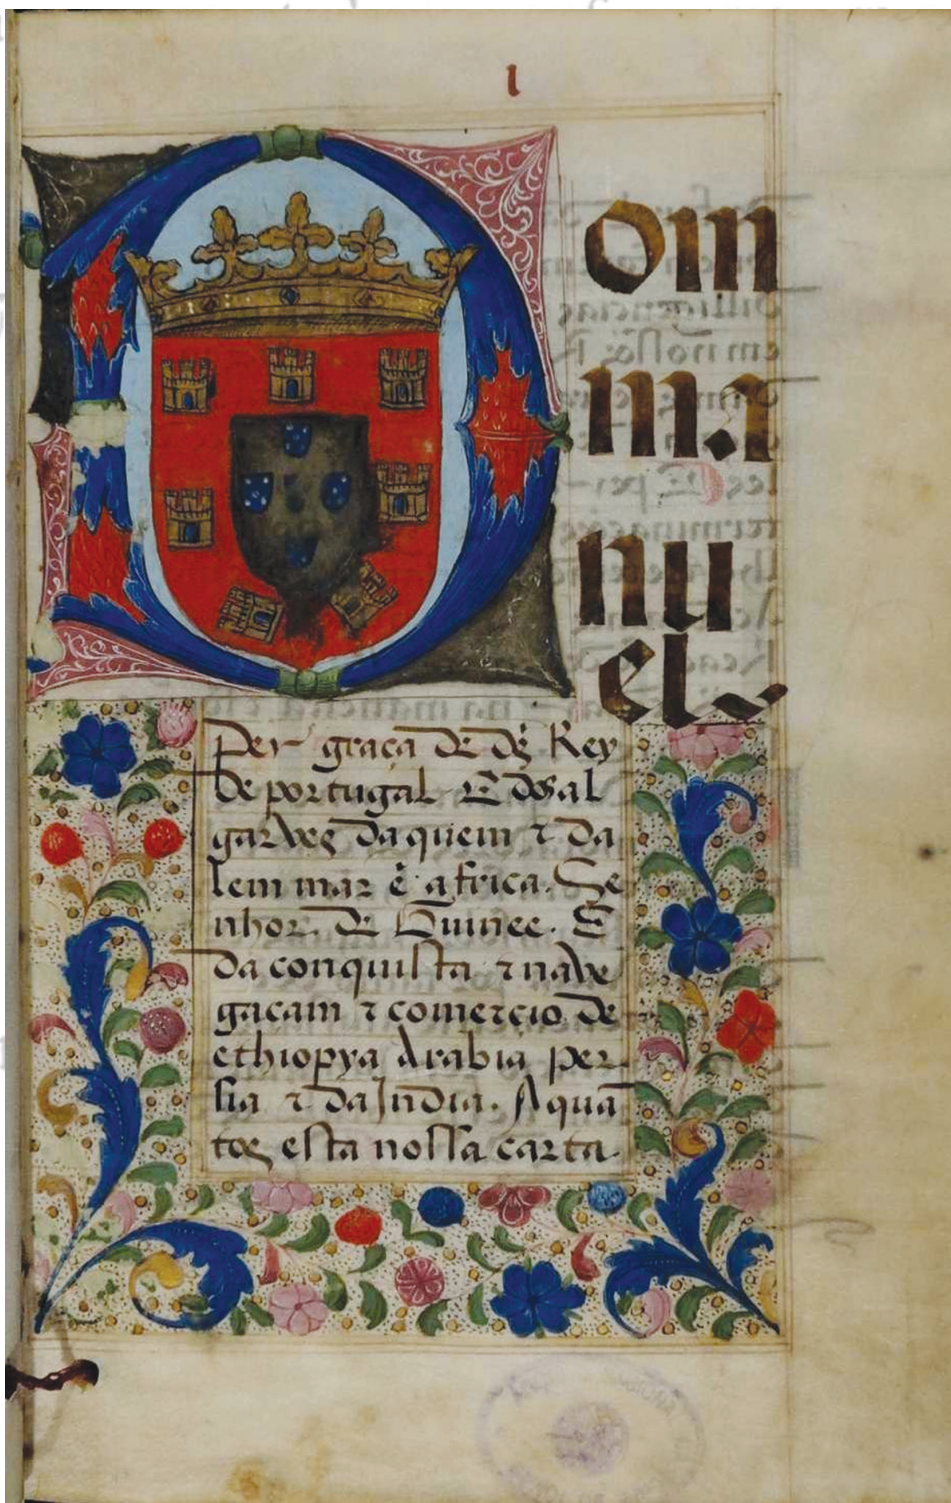 I
Dom
m.a
nu
el
Per graça de d̃s Rey
de portugal E dos al
garves daquem ꞇ da
lem mar ẽ africa. Se
nhor de Guinee. E
da conquista ꞇ nave
gacam ꞇ comerçio de
ethiopya Arabia per
sia ꞇ da India. A quã
tos esta nossa carta.